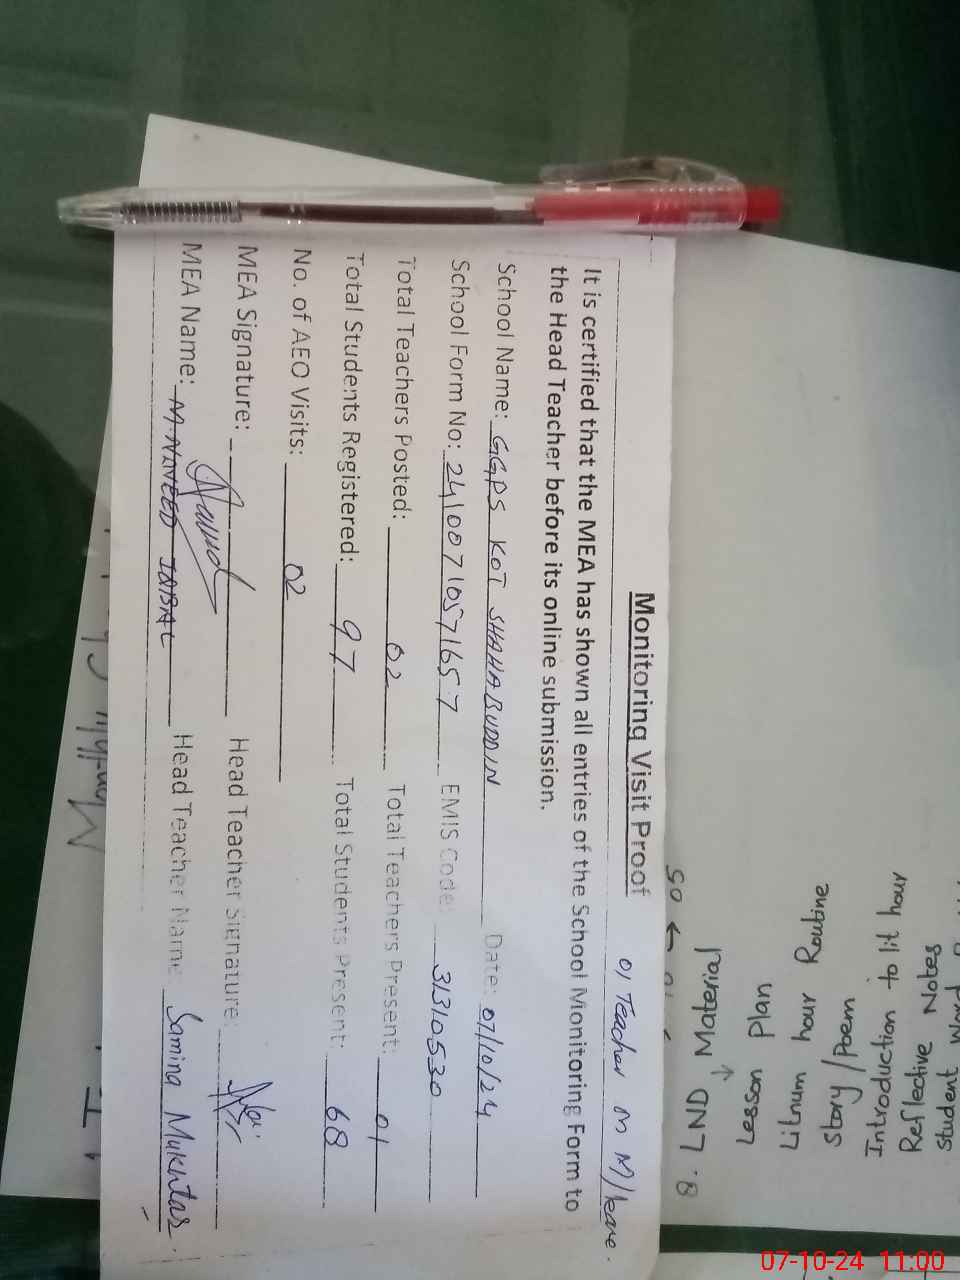 Monitoring Visit Proof
01 Teacher on M/leave.
It is certified that the MEA has shown all entries of the School Monitoring Form to
the Head Teacher before its online submission.
School Name: GGPS KOT SHAHABUDDIN Date: 07/10/24
School Form No: 24100710571657 EMIS Code: 31310530
Total Teachers Posted: 02 Total Teachers Present: 01
Total Students Registered: 97 Total Students Present: 68
No. of AEO Visits: 02
MEA Signature: Head Teacher Signature:
MEA Name: M. NAVEED IQBAL Head Teacher Name: Samina Mukhtar
8. LND Material
Lesson Plan
Litnum hour Routine
Story/Poem
Introduction to lit hour
Reflective Notes
Student
Monthly
07-10-24 11:00